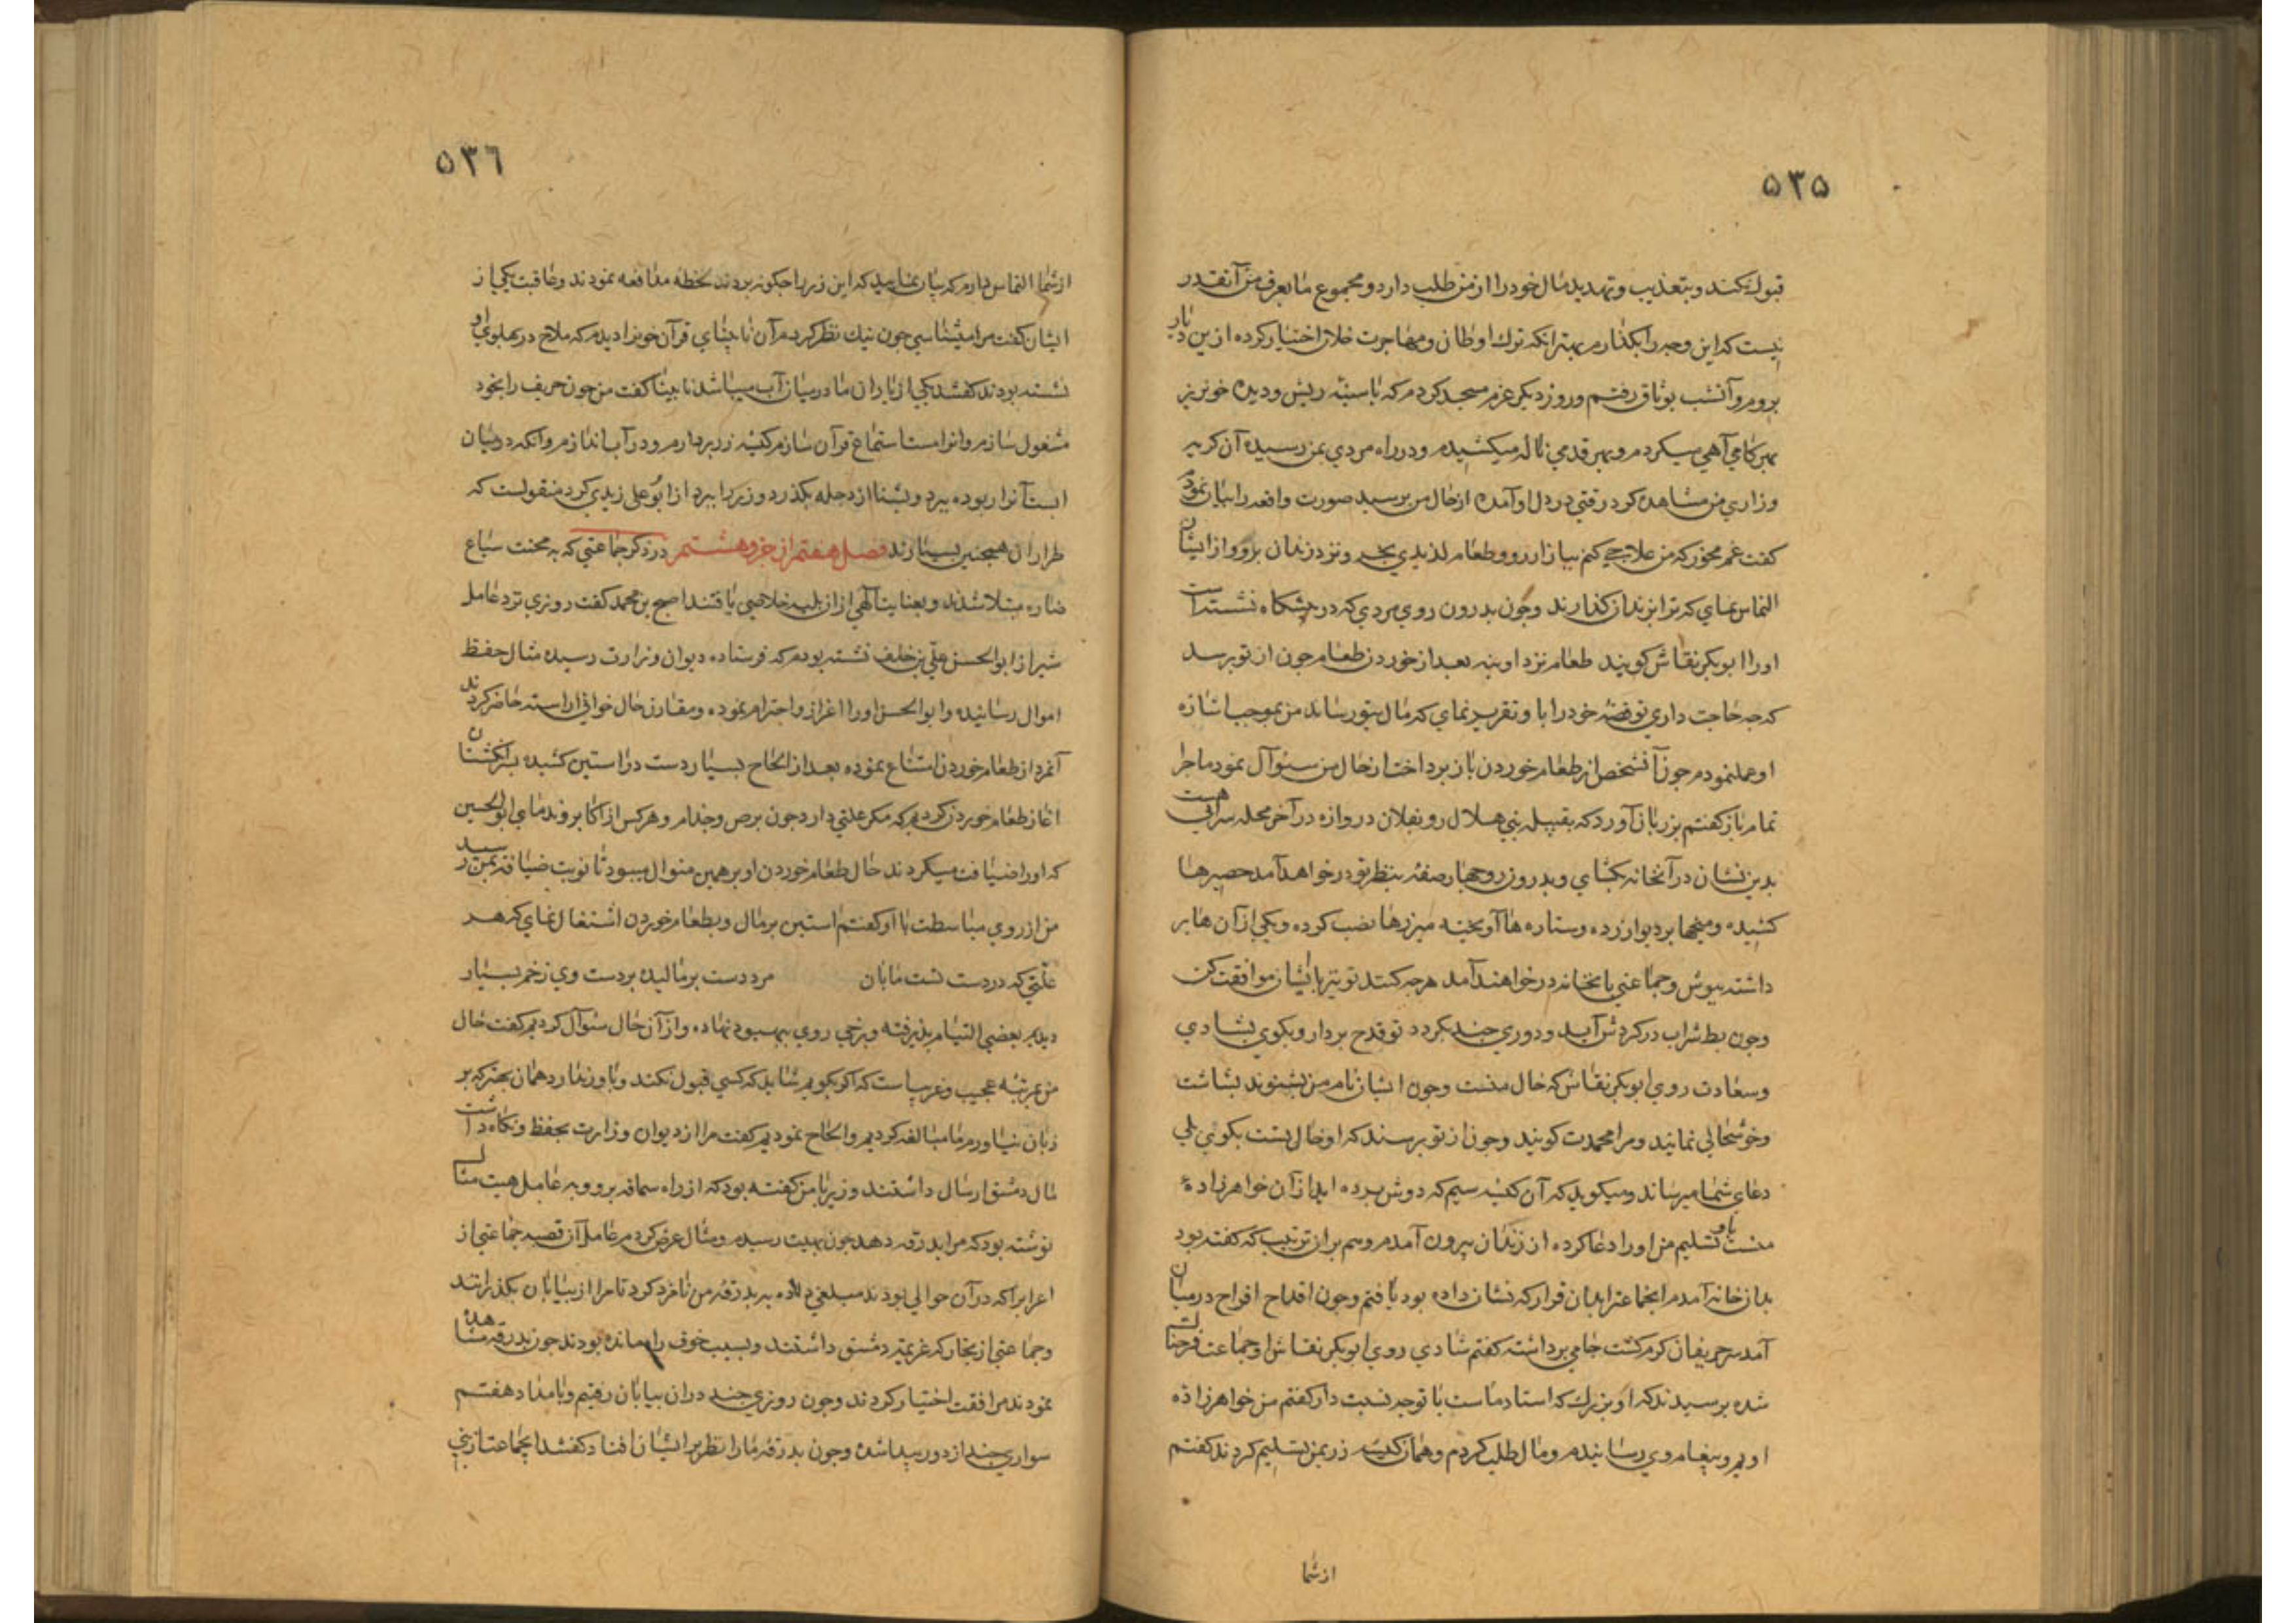 ٥٣٥
قبول نکند و بتعذیب و تهدید مال خود را از من طلب دارد و مجموع ما یعرف من آنقدر
نیست که این وجه را بگذارم بهتر انکه ترک اوطان و مهاجرت خلان اختیار کرده ازین دیار
بروم و آنشب بوثاق رفتم و روز دیکر عزم مسجد کردم که با سینهٔ ریش و دیدهٔ خونریز
بهر کامی آهی میکردم و بهر قدمی ناله میکشیدم و در راه مردی بمن رسیده آن کریه
و زاری من مشاهده کرد رقتی در دل او آمده از حال من پرسید صورت واقعه را بیان نمودم
کفت غم مخور که من علاجی کنم ببازار رو و طعام لذیذی بخر و نزد زندان برو و از ایشان
التماس نمای که ترا بزندان کذارند و چون بدرون روی مردی که در پیشکاه نشسته است
او را ابوبکر نقاش کویند طعام نزد او بنه بعد از خوردن طعام چون از تو پرسد
که چه حاجت داری تو قصهٔ خود را با او تقریر نمای که مال بتو رساند من بموجب اشارهٔ
او عمل نمودم چون آنشخص از طعام خوردن باز پرداخت از حال من سئوآل نمود ماجرا
تمام باز کفتم بر زبان آورد که بقبیله بنی هلال رو بفلان دروازه در آخر محله سرائی هست
بدین نشان در آنخانه بکشای و بدرون رو چهار صفه بنظر تو در خواهد آمد حصیرها
کشیده و میخها بر دیوار زده و ستاره ها آویخته میزرها نصب کرده و یکی از آن ها بر
داشته بپوش و جماعتی بانخانه در خواهند آمد هرچه کنند تو نیز با یشان موافقت کن
و چون بط شراب در کردش آید و دوری چند بکردد تو قدح بردار و بکوی بشادی
و سعادت روی ابوبکر نقاش که خال منست و چون ایشان نام من بشنوند بشاشت
و خوشحالی نمایند و مرا محمدت کویند و چون از تو پرسند که او خال تست بکوئی بلی
دعای شما میرساند و میکوید که آن کیسه سیم که دوش برده اید از آن خواهرزادهٔ
منست باو تسلیم من او را دعا کرده از زندان بیرون آمدم و هم بران ترتیب که کفته بود
بدان خانه آمدم انجماعترا بدان قرار که نشان داده بود یافتم و چون اقداح افراح در میان
آمد سر حریفان کرم کشت جامی برداشته کفتم شادی روی ابوبکر نقاش او جماعت فرحناک
شده پرسیدند که او بزرک که استاد ماست با تو چه نسبت دارد کفتم من خواهرزاده
اویم و پیغام وی رسانیدم و مال طلب کردم و همان کیسه زر بمن تسلیم کردند کفتم
از شما
٥٣٦
از شما التماس دارم که بیان نمایید که این زر را چکونه بردند لحظهٔ مدافعه نمودند و عاقبت یکی از
ایشان کفت مرا میشناسی چون نیک نظر کردم آن نابینای قرآن خوانرا دیدم که ملاح در پهلوی او
نشسته بودند کفتند یکی از یاران ما در میان آب میباشد نابینا کفت من چون حریف را بخود
مشغول سازم و انرا مست استماع قرآن سازم کیسه زر بردارم و در آب اندازم و آنکه در میان
ابست آنرا ربوده ببرد و بشنا از دجله بکذرد و زر را ببرد از ابوعلی زیدی کرد منقولست که
طراران همچنین بسیارند فصل هفتم از جزو هشتم در ذکر جماعتی که به محنت سباع
ضاره مبتلا شدند و بعنایت الهی از ان بلیه خلاصی یافتند اصبح بن محمد کفت روزی نزد عامل
شیراز ابوالحسن علی بن خلف نشسته بودم که فرستاده دیوان وزارت رسیده مثال حفظ
اموال رسانیده و ابوالحسن او را اغراز و احترام نموده و مقارن حال خوانی اراسته حاضر کردند
آنمرد از طعام خوردن امتناع نموده بعد از الحاح بسیار دست در استین کشیده بسر انکشتان
اغاز طعام خوردن کردیم که مکر علتی دارد چون برص و جذام و هر کس از اکابر و ندمای ابوالحسین
که او را ضیافت میکردند حال طعام خوردن او بر همین منوال میبود تا نوبت ضیافت بمن رسید
من از روی مباسطت با او کفتم استین بر مال و بطعام خوردن اشتغال نمای که هر
علتی که در دست تست ما بان مرد دست بر مالیده بر دست وی زخم بسیار
دیدیم بعضی التیام پذیرفته و برخی روی ببهبود نهاده و از آن حال سئوآل کردیم کفت حال
من بمرتبهٔ عجیب و غریبست که اکر بکویم شاید که کسی قبول نکند و باور ندارد همان بهتر که بر
زبان نیاورم ما مبالغه کردیم و الحاح نمودیم کفت مرا از دیوان وزارت بحفظ و نکاه داشت
مال دمشق ارسال داشتند وزیر با من کفته بود که از راه سماقه برو و به عامل هیت مثال
نوشته بود که مرا بدرقه دهد چون بهیت رسیدم و مثال عرض کردم عامل آن قصبه جماعتی از
اعرابرا که در آن حوالی بودند مبلغی داده به بدرقهٔ من نامزد کرد تا مرا از بیابان بکذرانند
و جماعتی از تجار که عزیمت دمشق داشتند و بسبب خوف راه مانده بودند چون بدرقه مشاهده
نمودند مرافقت اختیار کردند و چون روزی چند دران بیابان رفتیم و بامداد هفتم
سواری چند از دور پیدا شده و چون بدرقهٔ ما را نظر بر ایشان افتاد کفتند انجماعت از بنی